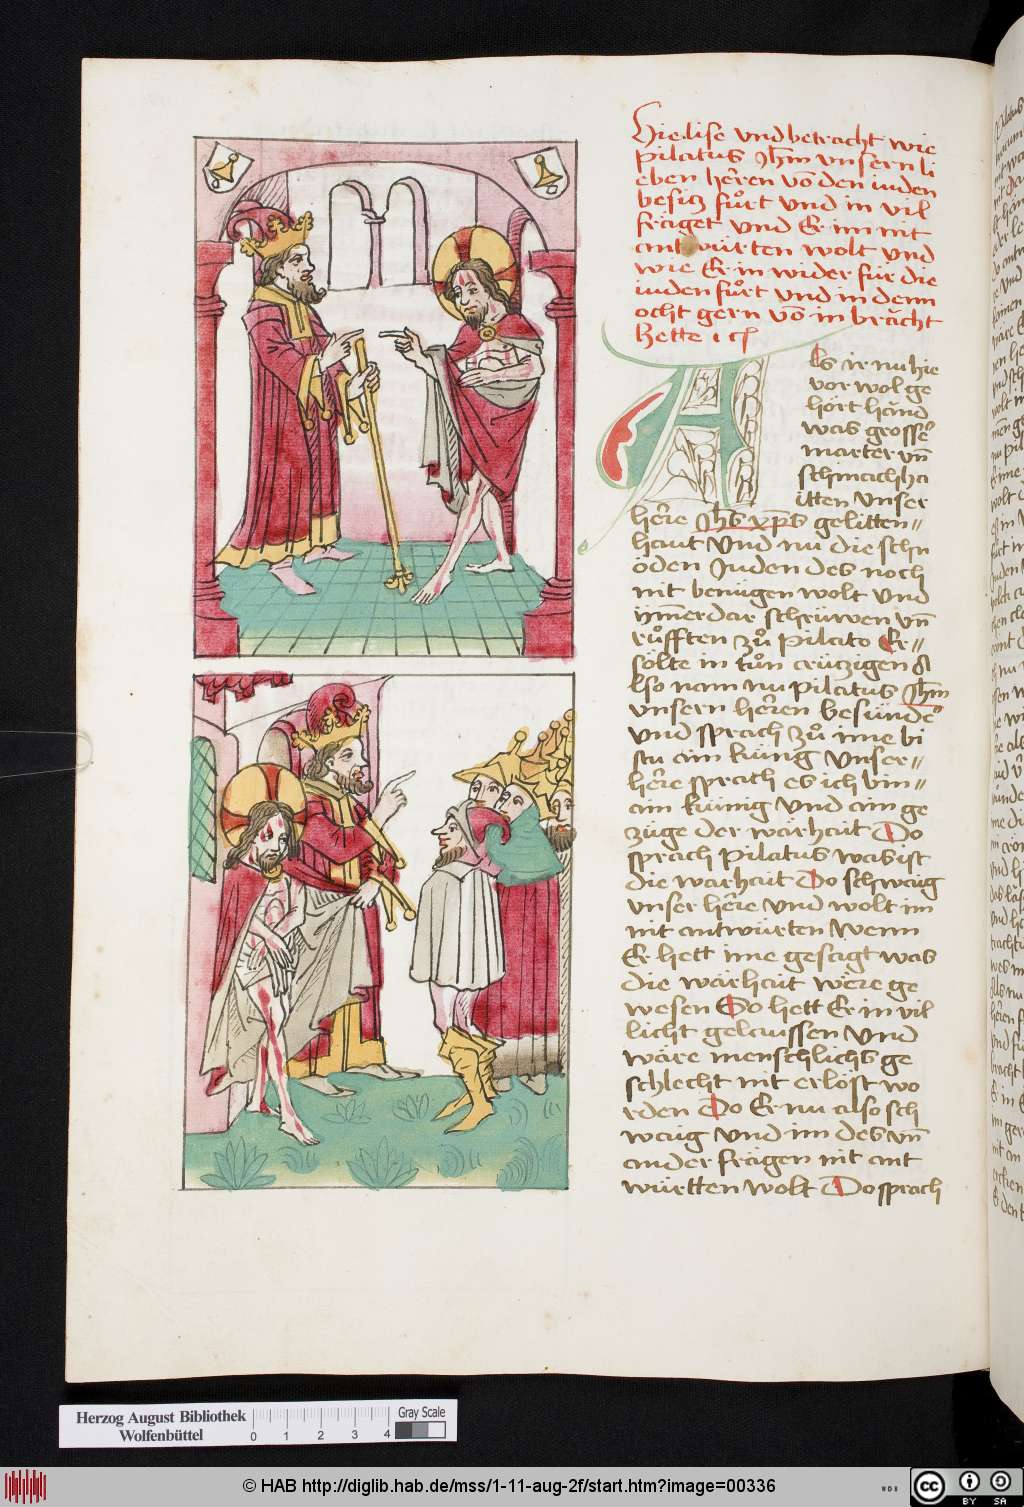 Hie lise vnd betracht wie
pilatus Jh̄m vnsern li
eben herren vō den iuden
besitz fuͦrt vnd in vil
fraͤget vnd Er im nit
antwürten wolt vnd
wie Er in wider für die
iuden fuͦrt vnd in denn
ocht gern vō in braͤcht
hette
Als ir nu hie
vor wol ge
hört hānd
was grosser
marter vn̄
schmachha
itten vnser
herre Jh̄s xp̄s gelitten //
haut Vnd nu die schn
öden Juden des noch
nit benügen wolt vnd
ym̄erdar schrüwen vn̄
ruͦfften zuͦ pilato Er //
sölte in tuͦn crüczigen A
lso nam nu pilatus Jh̄m
vnsern herren besunder
vnd sprach zuͦ ime bi
stu ain künig Vnser //
herre sprach es ich bin //
ain künig vnd ain ge
züge der warhait Do
sprach pilatus was ist
die warhait Do schwaig
vnser herre vnd wolt im
nit antwürten Wenn
Er hett ime gesagt was
die warhait were ge
wesen So hett Er in vil
licht gelaussen vnd
wäre menschlichs ge
schlecht nit erlöst wo
rden Do Er nu also sch
waig vnd im des vn̄
ander fragen nit ant
württen wolt Do sprach
Herzog August Bibliothek
Wolfenbüttel
0 1 2 3 4
Gray Scale
© HAB http://diglib.hab.de/mss/1-11-aug-2f/start.htm?image=00336
WDB
cc BY SA